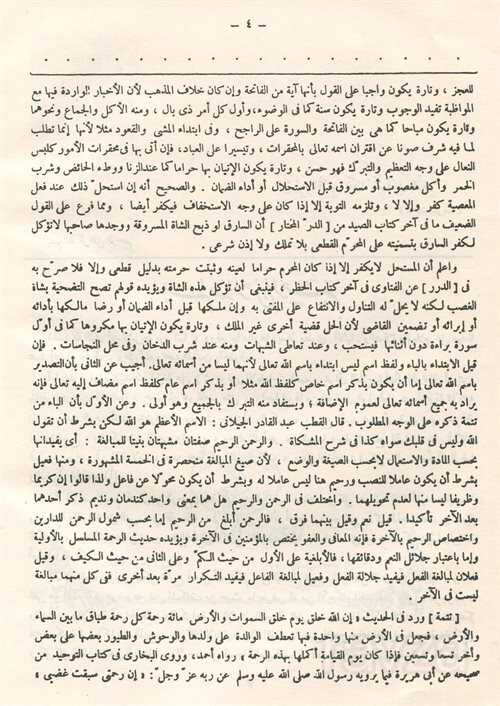 – ٤ –
للعجز ، وتارة يكون واجبا على القول بأنها آية من الفاتحة وإن كان خلاف المذهب لأن الأخبار الواردة فيها مع
المواظبة تفيد الوجوب وتارة يكون سنة كما فى الوضوء، وأول كل أمر ذى بال ، ومنه الأكل والجماع ونحوهما
وتارة يكون مباحا كما هى بين الفاتحة والسورة على الراجح ، وفى ابتداء المشى والقعود مثلا لأنها إنما تطلب
لما فيه شرف صونا عن اقتران اسمه تعالى بالمحقرات ، وتيسيرا على العباد، فإن أتى بها فى محقرات الأمور كلبس
النعال على وجه التعظيم والتبرك فهو حسن ، وتارة يكون الإتيان بها حراما كما عند الزنا ووطء الحائض وشرب
الخمر وأكل مغصوب أو مسروق قبل الاستحلال أو أداء الضمان . والصحيح أنه إن استحل ذلك عند فعل
المعصية كفر وإلا لا ، وتلزمه التوبة إلا إذا كان على وجه الاستخفاف فيكفر أيضا ، ومما فرع على القول
الضعيف ما فى آخر كتاب الصيد من [ الدر المختار ] أن السارق لو ذبح الشاة المسروقة ووجدها صاحبها لا تؤكل
لكفر السارق بتسميته على المحرّم القطعى بلا تملك ولا إذن شرعى .
واعلم أن المستحل لا يكفر إلا إذا كان المحرم حراما لعينه وثبتت حرمته بدليل قطعى وإلا فلا صرّح به
فى [ الدرر ] عن الفتاوى فى آخر كتاب الحظر ، فينبغى أن تؤكل هذه الشاة ويؤيده قولهم تصح التضحية بشاة
الغصب لكنه لا يحلّ له التناول والانتفاع على المفتى به وإن ملكها قبل أداء الضمان أو رضا مالكها بأدائه
أو إبرائه أو تضمين القاضى لأن الحل قضية أخرى غير الملك ، وتارة يكون الإتيان بها مكروها كما فى أوّل
سورة براءة دون أثنائها فيستحب ، وعند تعاطى الشبهات ومنه عند شرب الدخان وفى محل النجاسات . فإن
قيل الابتداء بالباء ولفظ اسم ليس ابتداء باسم الله تعالى لأنهما ليسا من أسمائه تعالى. أجيب عن الثانى بأن التصدير
باسم الله تعالى إما أن يكون بذكر اسم خاص كلفظ الله مثلا أو بذكر اسم عام كلفظ اسم مضاف إليه تعالى فإنه
يراد به جميع أسمائه تعالى لعموم الإضافة ؛ ويستفاد منه التبرك بالجميع وهو أولى . وعن الأوّل بأن الباء من
تتمة ذكره على الوجه المطلوب . قال القطب عبد القادر الجيلانى : الاسم الأعظم هو الله لكن بشرط أن تقول
الله وليس فى قلبك سواه كذا فى شرح المشكاة . والرحمن الرحيم صفتان مشبهتان بنيتا للمبالغة : أى يفيدانها
بحسب المادة والاستعمال لا بحسب الصيغة والوضع ، لأن صيغ المبالغة منحصرة فى الخمسة المشهورة ، ومنها فعيل
بشرط أن يكون عاملا للنصب ورحيم هنا ليس عاملا له وبشرط أن يكون محولا عن فاعل ولذا قالوا إن كريما
وظريفا ليسا منها لعدم تحويلهما . واختلف فى الرحمن والرحيم هل هما بمعنى واحد كندمان ونديم ذكر أحدهما
بعد الآخر تأكيدا . قيل نعم وقيل بينهما فرق ، فالرحمن أبلغ من الرحيم إما بحسب شمول الرحمن للدارين
واختصاص الرحيم بالآخرة فإنه المعافى والعفو يختص بالمؤمنين فى الآخرة ويؤيده حديث الرحمة المسلسل بالأولية
وإما باعتبار جلائل النعم ودقائقها ، فالأبلغية على الأول من حيث الكم وعلى الثانى من حيث الكيف ، وقيل
فعلان لمبالغة الفعل فيفيد جلالة الفعل وفعيل لمبالغة الفاعل فيفيد التكرار مرّة بعد أخرى ففى كل منهما مبالغة
ليست فى الآخر .
[ تتمة ] ورد فى الحديث « إن الله خلق يوم خلق السموات والأرض مائة رحمة كل رحمة طباق ما بين السماء
والأرض ، فجعل فى الأرض منها واحدة فبها تعطف الوالدة على ولدها والوحوش والطيور بعضها على بعض
وأخر تسعا وتسعين فإذا كان يوم القيامة أكملها بهذه الرحمة » رواه أحمد، وروى البخارى فى كتاب التوحيد من
صحيحه عن أبى هريرة فيما يرويه رسول الله صلى الله عليه وسلم عن ربه عزّ وجلّ « إن رحمتى سبقت غضبى »